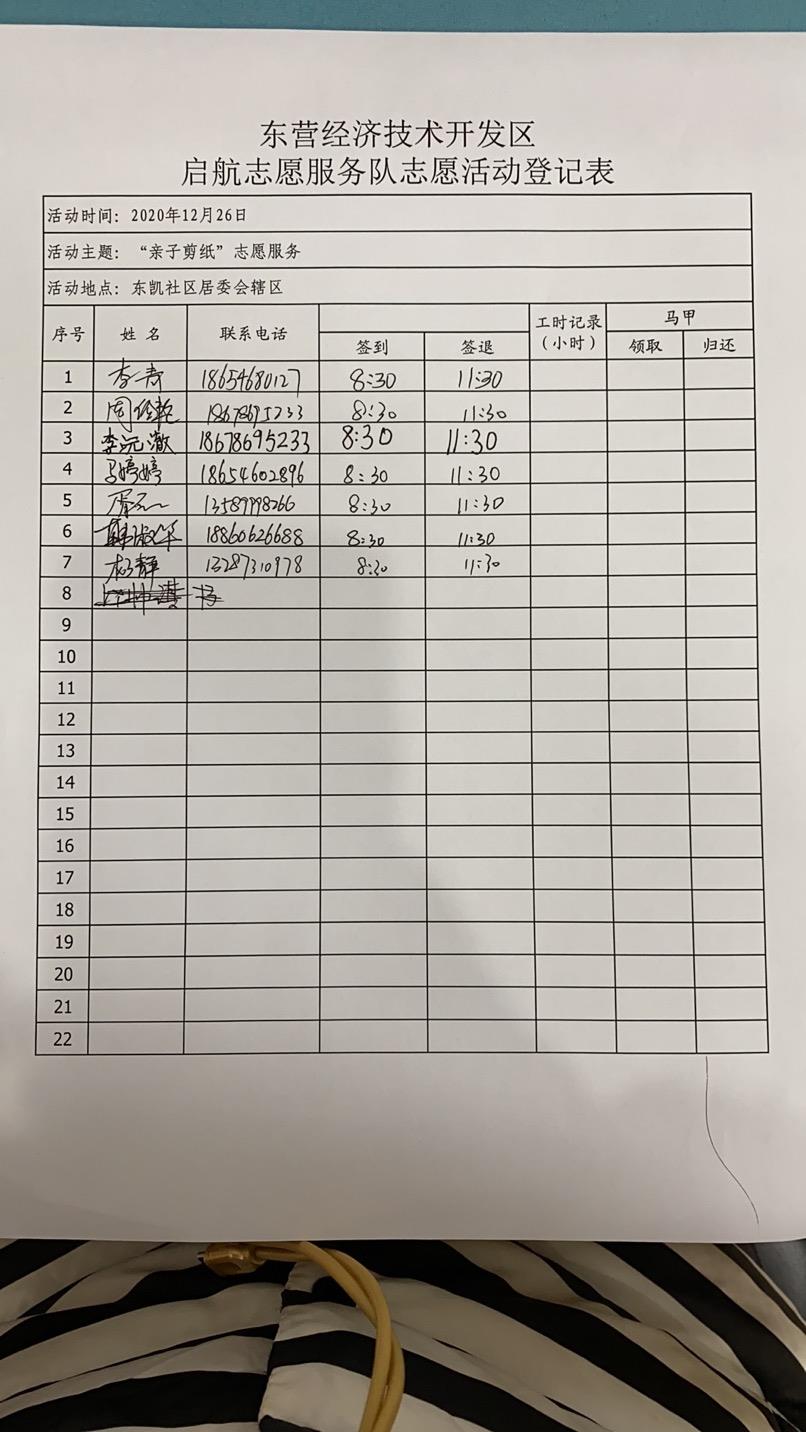 东营经济技术开发区
启航志愿服务队志愿活动登记表
活动时间：2020年12月26日
活动主题：“亲子剪纸”志愿服务
活动地点：东凯社区居委会辖区
序号 姓名 联系电话 签到 签退 工时记录（小时） 马甲 领取 归还
1 李青 18654680127 8:30 11:30
2 18678695233 8:30 11:30
3 李沅澈 18678695233 8:30 11:30
4 马婷婷 18654602896 8:30 11:30
5 13589998266 8:30 11:30
6 韩淑华 18860626688 8:30 11:30
7 杨静 13287310978 8:30 11:30
8
9
10
11
12
13
14
15
16
17
18
19
20
21
22